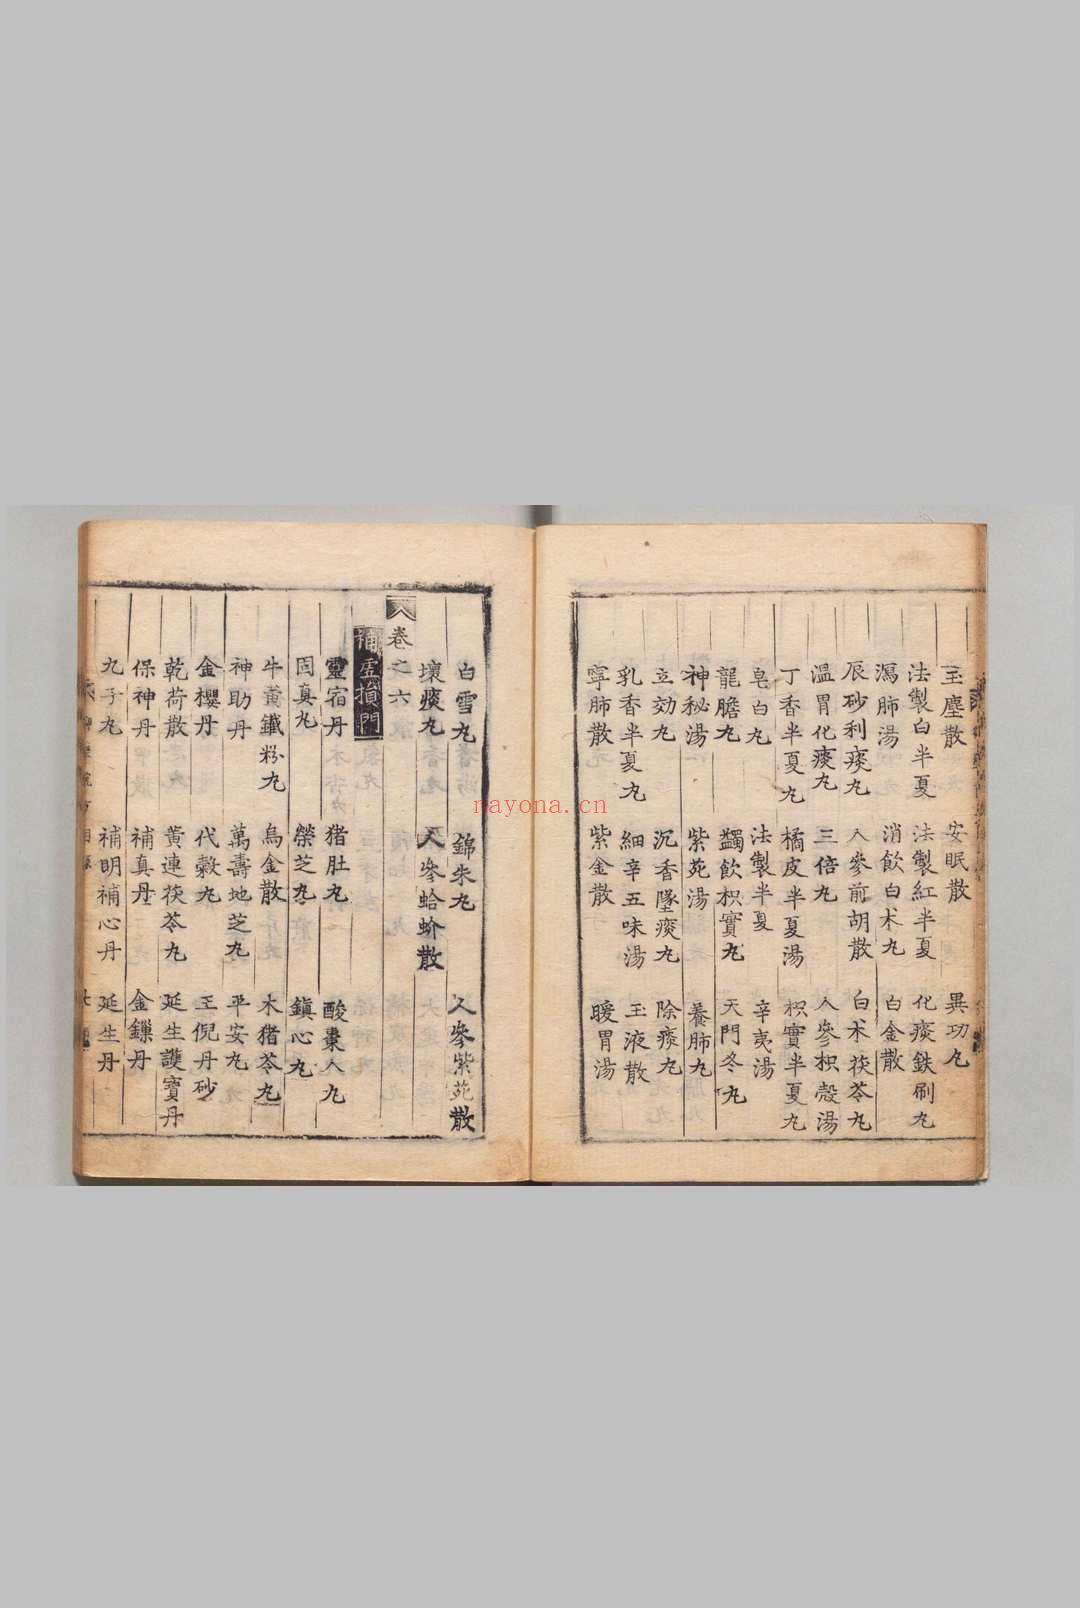 玉塵散 安眠散 異功丸
法製白半夏 法製紅半夏 化痰鉄刷丸
瀉肺湯 消飲白术丸 白金散
辰砂利痰丸 人參前胡散 白术茯苓丸
溫胃化痰丸 三倍丸 人參枳殼湯
丁香半夏丸 橘皮半夏湯 枳實半夏丸
皂白丸 法製半夏 辛夷湯
龍膽丸 蠲飲枳實丸 天門冬丸
神秘湯 紫苑湯 養肺丸
立効丸 沉香墜痰丸 除痰丸
乳香半夏丸 細辛五味湯 玉液散
寧肺散 紫金散 暖胃湯
白雪丸 錦朱丸 人參紫苑散
壞痰丸 人參蛤蚧散
卷之六
補虛損門
靈宿丹 猪肚丸 酸棗人丸
固真丸 榮芝丸 鎮心丸
牛黃鐵粉丸 烏金散 木猪苓丸
神助丹 萬壽地芝丸 平安丸
金櫻丹 代穀丸 玉倪丹砂
乾荷散 黃連茯苓丸 延生護寶丹
保神丹 補真丹 金鏁丹
九子丸 補明補心丹 延生丹
nayona.cn